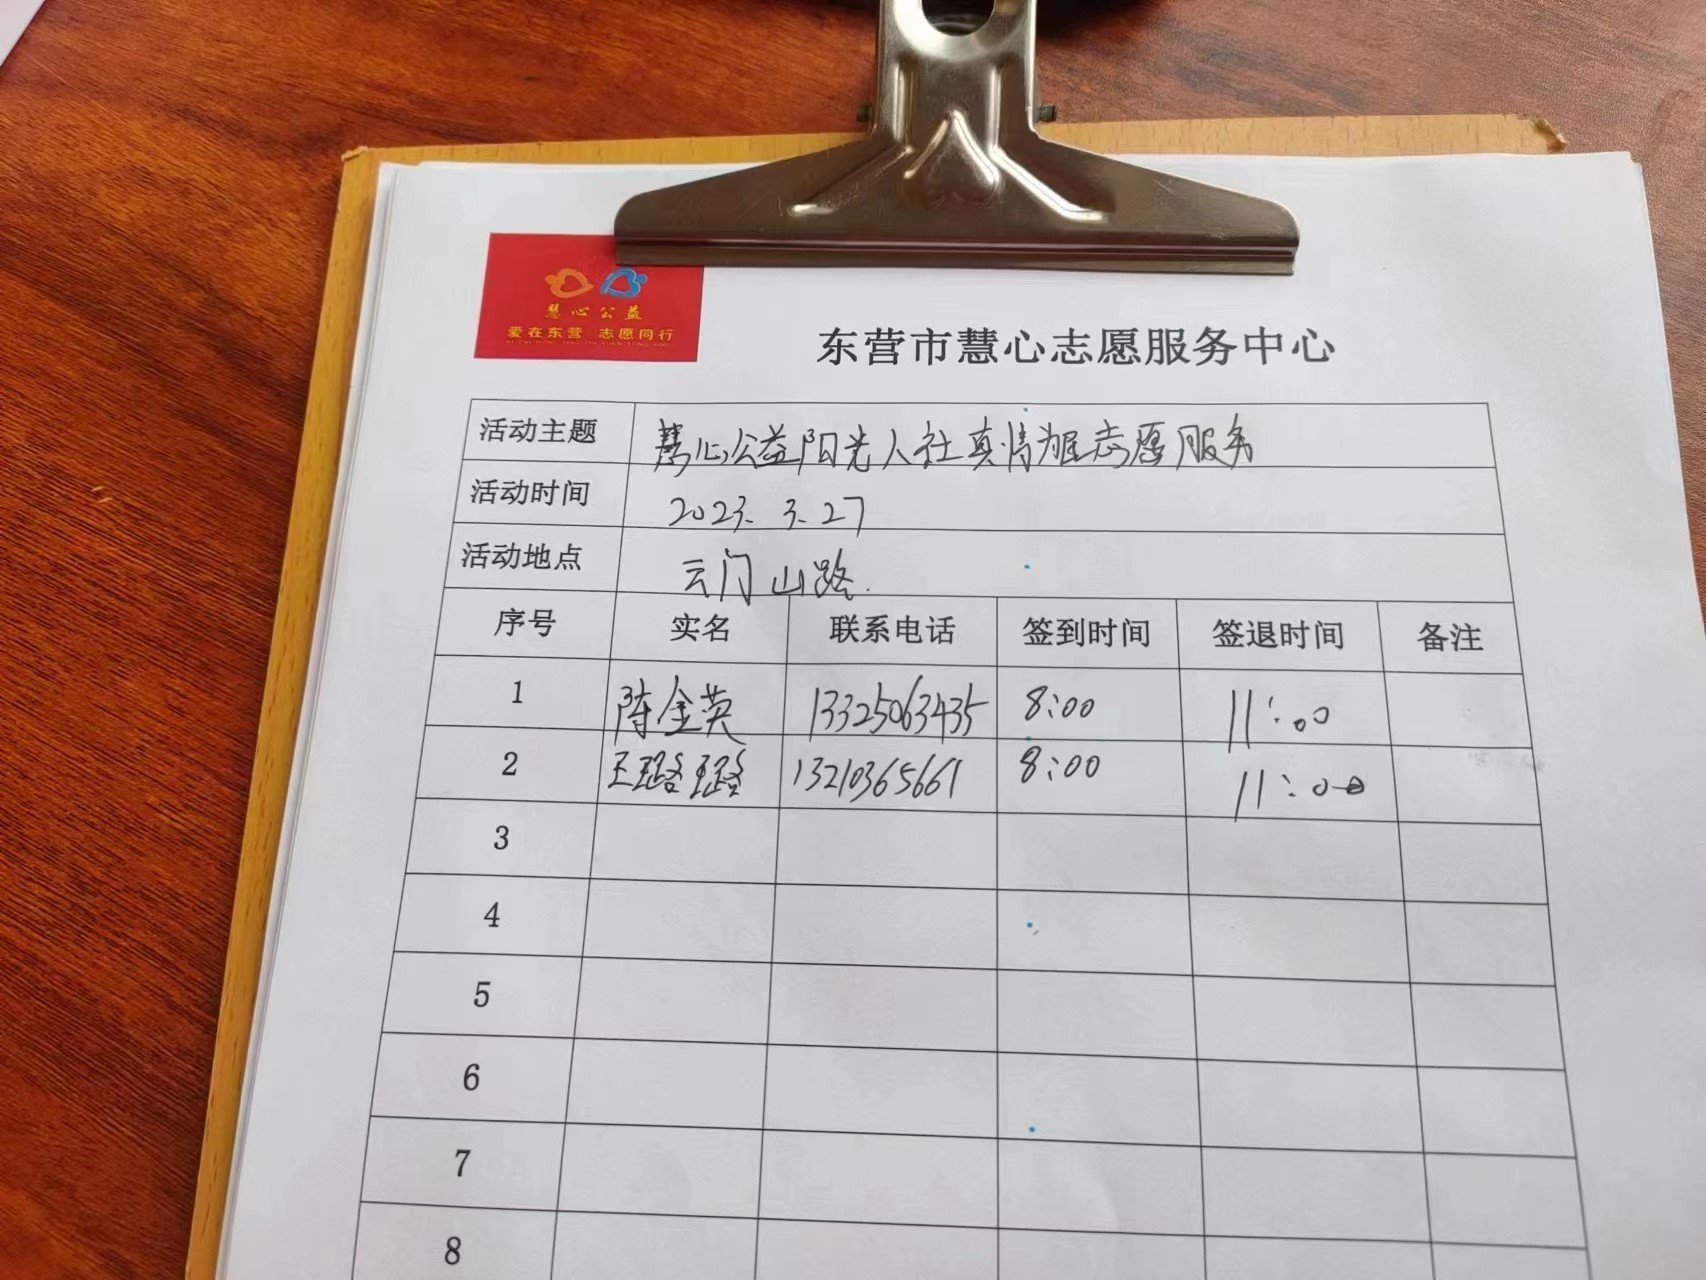 慧心公益
爱在东营 志愿同行
东营市慧心志愿服务中心
活动主题 慧心公益阳光人社真情为民志愿服务
活动时间 2023.3.27
活动地点 云门山路.
序号 实名 联系电话 签到时间 签退时间 备注
1 陈金英 13325063435 8:00 11:00
2 王璐璐 13210365661 8:00 11:00
3
4
5
6
7
8